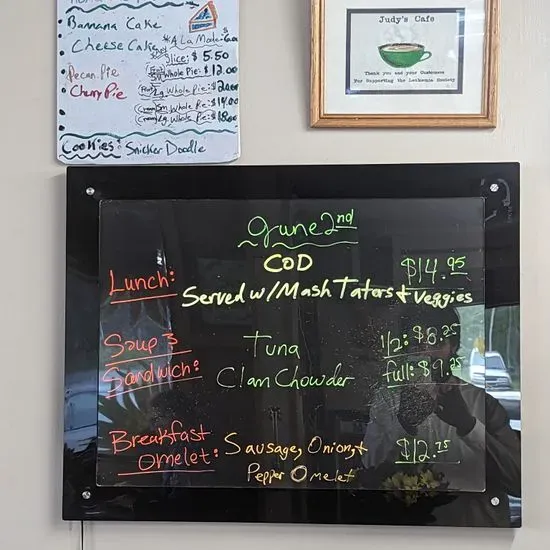 Banana Cake
Cheese Cake
*A La Mode
Slice: $5.50
Pecan Pie
Sm Whole Pie: $12.00
Cherry Pie
Lg. Whole Pie:
Sm Whole Pie: $14.00
Lg. Whole Pie: $18.00
Cookies: Snicker Doodle
Judy's Cafe
Thank you and your Customers
For Supporting the Leukemia Society
June 2nd
Lunch:
COD
$14.95
Served w/ Mash Taters + Veggies
Soup &
Sandwich:
Tuna
Clam Chowder
1/2: $6.25
full: $9.25
Breakfast
Omelet:
Sausage, Onion, +
Pepper Omelet
$12.75